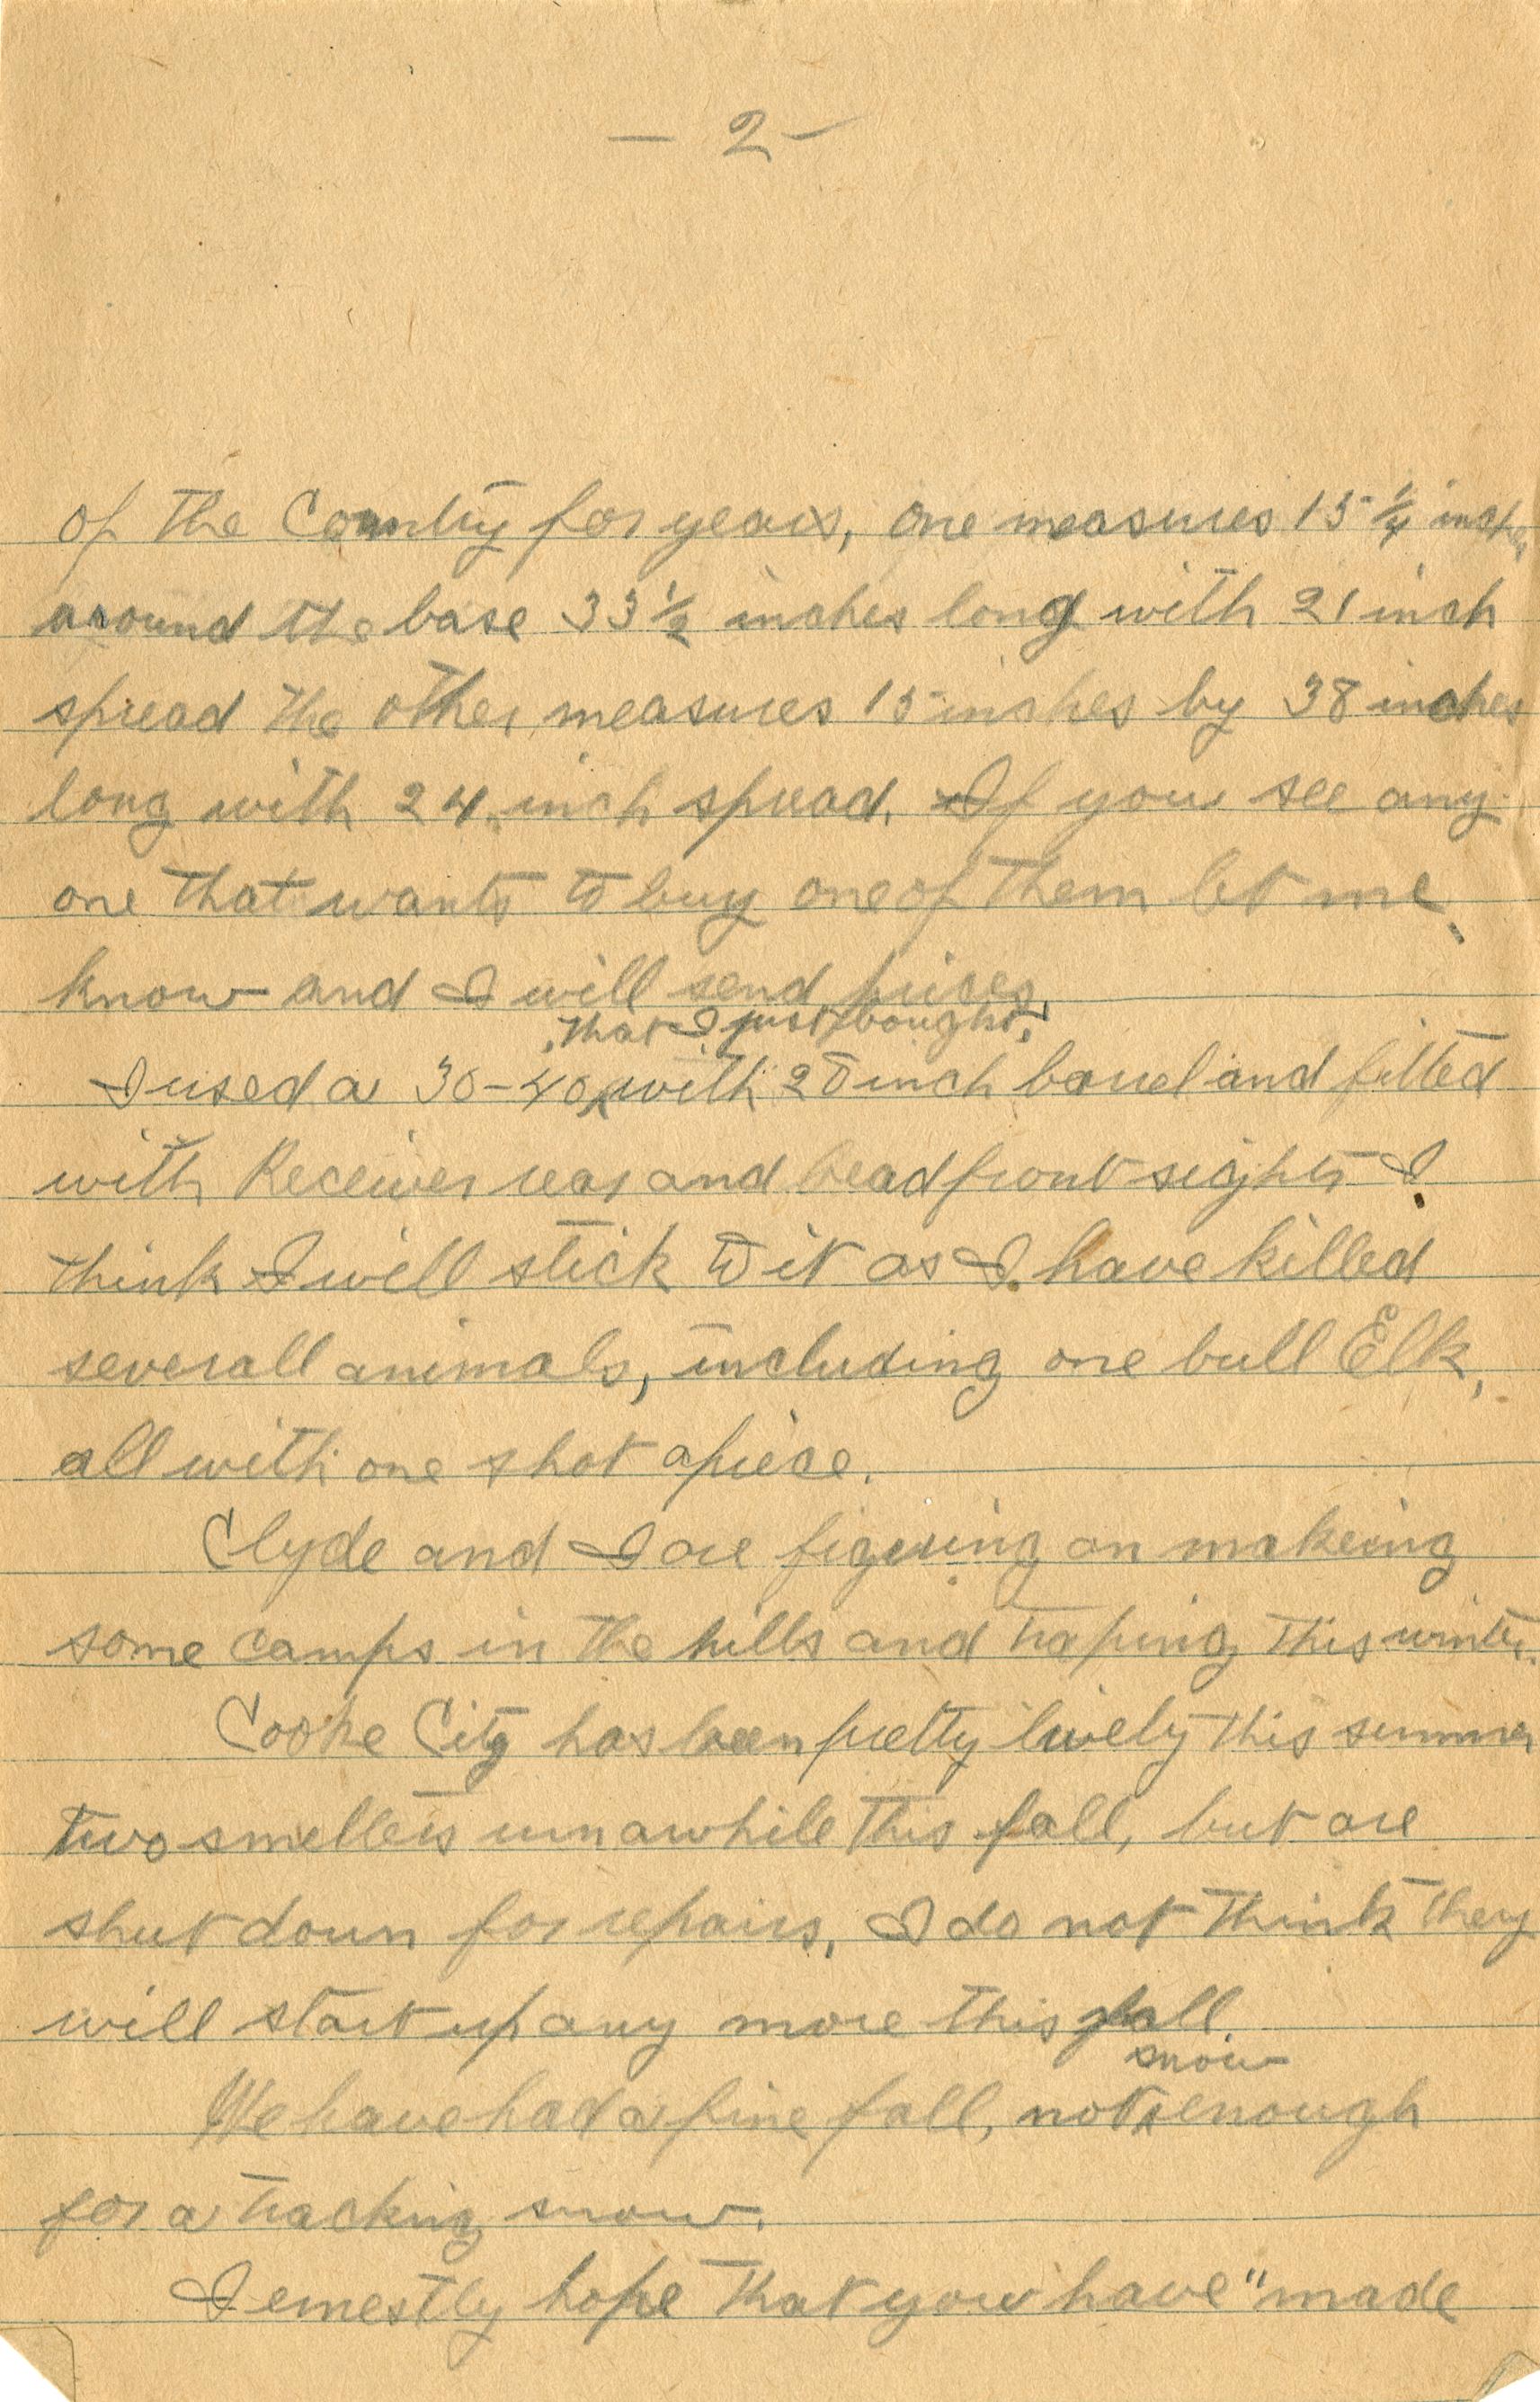 — 2 —
of the Country for years, one measures 15 1/4 inches
around the base 33 1/2 inches long with 21 inch
spread the other measures 15 inches by 38 inches
long with 24 inch spread. If you see any
one that wants to buy one of them let me
know and I will send prices.
that I just bought,
I used a 30-40 with 28 inch barrel and fitted
with Receiver rear and bead front sights I
think I will stick to it as I have killed
severall animals, including one bull Elk,
all with one shot apiece.
Clyde and I are figuring on makeing
some camps in the hills and traping this winter.
Cooke City has been pretty lively this summer
two smelters run awhile this fall, but are
shut down for repairs, I do not think they
will start up any more this fall.
snow
We have had a fine fall, not enough
for a tracking snow.
I ernestly hope that you have "made